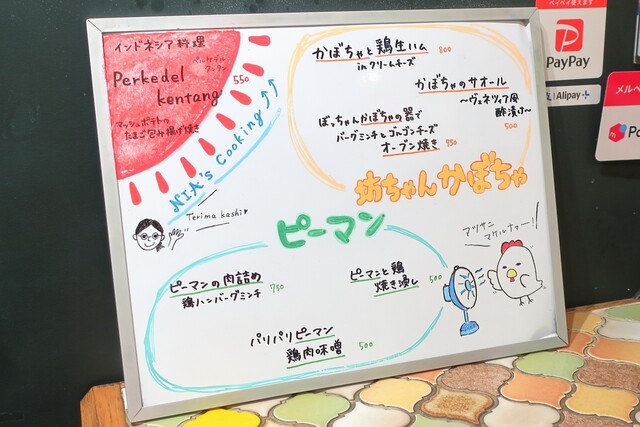 インドネシア料理
ペルケデル
クンタン
Perkedel
kentang
550
マッシュポテトの
たまご包み揚げ焼き
NIA's Cooking
Terima kashi
かぼちゃと鶏生ハム 800
inクリームチーズ
かぼちゃのサオール
〜ヴェネツィア風
酢漬け〜
500
ぼっちゃんかぼちゃの器で
バーグミンチとゴルゴンチーズ
オーブン焼き 950
坊ちゃんかぼちゃ
ピーマン
アツサニ
マケルナァー!
ピーマンの肉詰め
鶏ハンバーグミンチ 750
ピーマンと鶏
焼き凍し 500
パリパリピーマン
鶏肉味噌 500
ペイペイ使えます
PayPay
Alipay+
メルペ